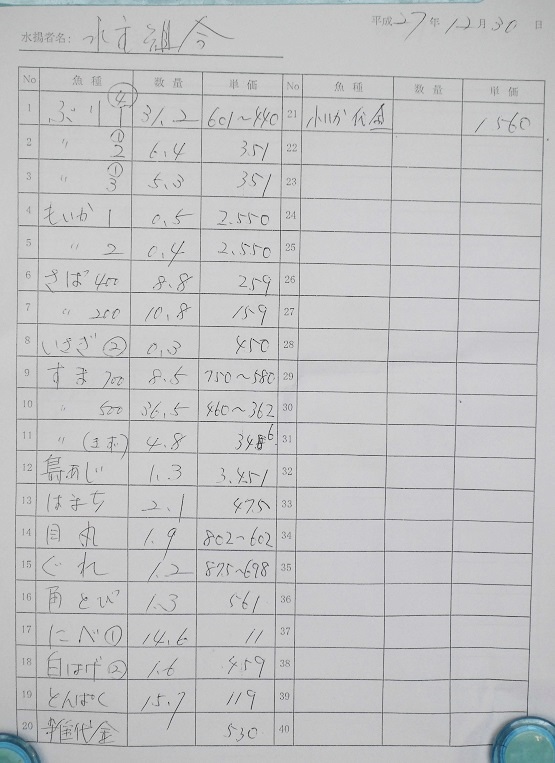 平成27年12月30日
水揚者名: 水主組合
No 魚種 数量 単価 No 魚種 数量 単価
1 ぶり1 ④ 31.2 601~440 21 小いか代金 1560
2 〃 2 ① 6.4 351 22
3 〃 3 ① 5.3 351 23
4 もいか 1 0.5 2.550 24
5 〃 2 0.4 2.550 25
6 さば 400 8.8 259 26
7 〃 200 10.8 159 27
8 いさぎ ② 0.3 450 28
9 すま 700 8.5 750~580 29
10 〃 500 36.5 460~362 30
11 〃 (まず) 4.8 346 31
12 島あじ 1.3 3.451 32
13 はまち 2.1 475 33
14 目丸 1.9 802~602 34
15 ぐれ 1.2 875~698 35
16 角とび 1.3 561 36
17 にべ ① 14.6 11 37
18 白はげ ② 1.6 459 38
19 とんぱく 15.7 119 39
20 雑代金 530 40